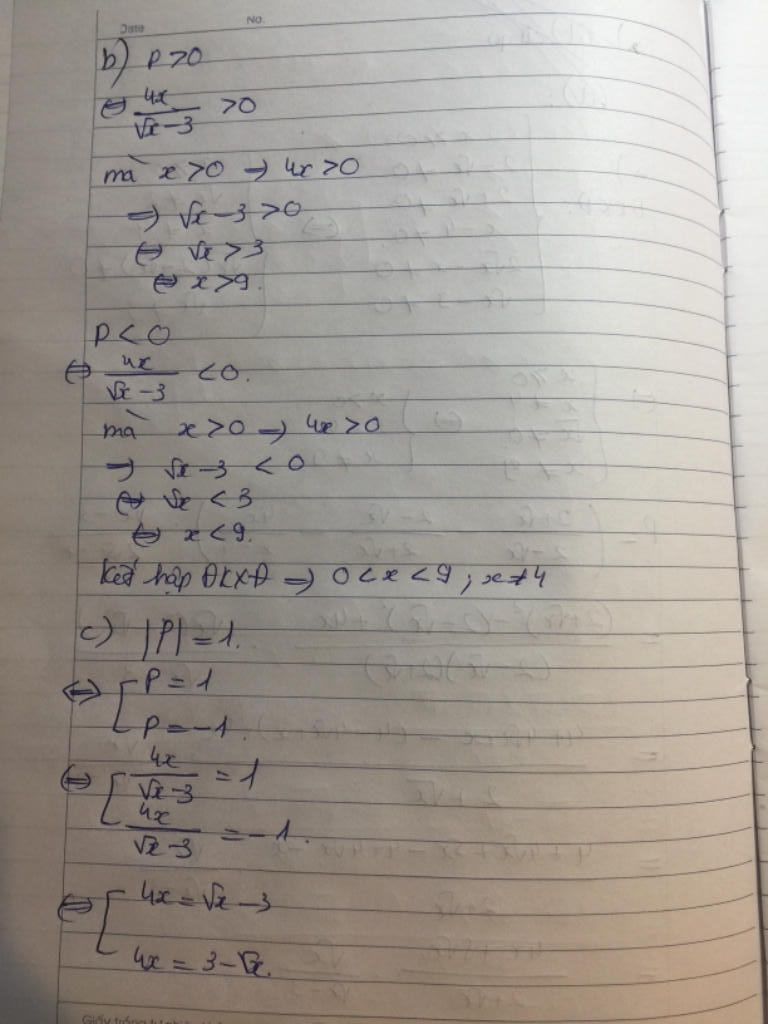 Date No.
b) P > 0
⇔ 4x/(√x - 3) > 0
mà x > 0 ⇒ 4x > 0
⇒ √x - 3 > 0
⇔ √x > 3
⇔ x > 9.
P < 0
⇔ 4x/(√x - 3) < 0.
mà x > 0 ⇒ 4x > 0
⇒ √x - 3 < 0
⇔ √x < 3
⇔ x < 9.
Kết hợp ĐKXĐ ⇒ 0 < x < 9 ; x ≠ 4
c) |P| = 1.
⇔ [ P = 1
P = -1.
⇔ [ 4x/(√x - 3) = 1
4x/(√x - 3) = -1.
⇔ [ 4x = √x - 3
4x = 3 - √x.